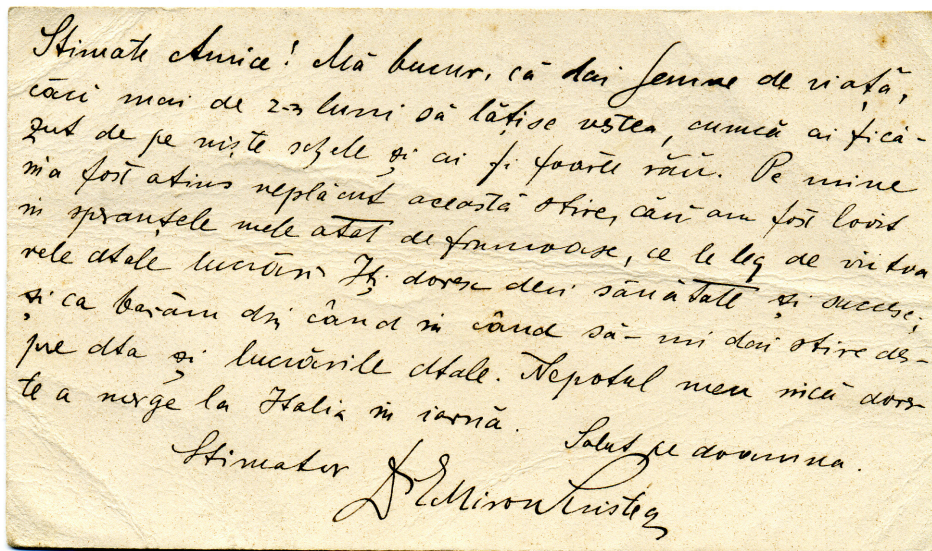 Stimate Amice! Mă bucur, că dai semne de viață,
căci mai de 2-3 luni să lățise vestea, cumcă ai fi că-
zut de pe niște schele și ai fi foarte rău. Pe mine
m'a fost atins neplăcut această stire, căci am fost lovit
in speranțele mele atat de frumoase, ce le leg de viitoa
rele dtale lucrări Iți doresc deci sănătate și succese;
și ca barăm din când in când să-mi dai stire des-
pre dta și lucrările dtale. Nepotul meu incă dores-
te a merge la Italia in iarnă.
Salut pe doamna.
Stimator Dr EMiron Cristea